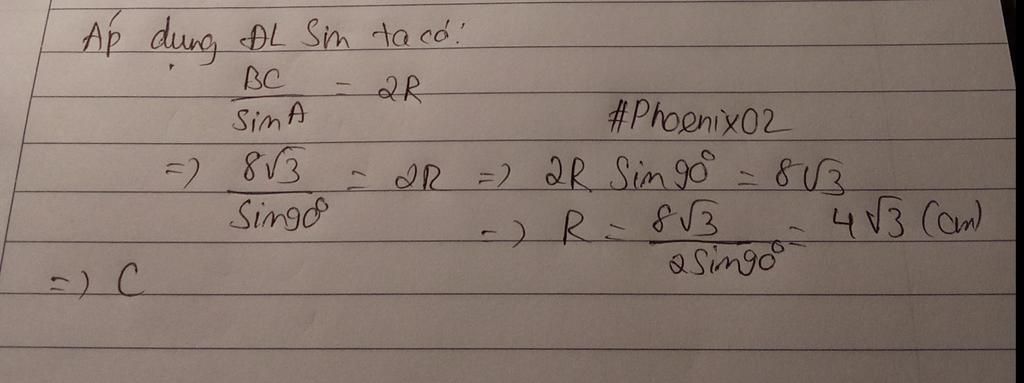 Áp dụng ĐL Sin ta có:
BC/SinA = 2R
#Phoenix02
=> 8√3/Sin90° = 2R => 2R Sin90° = 8√3
=> R = 8√3/2Sin90° = 4√3 (cm)
=> C